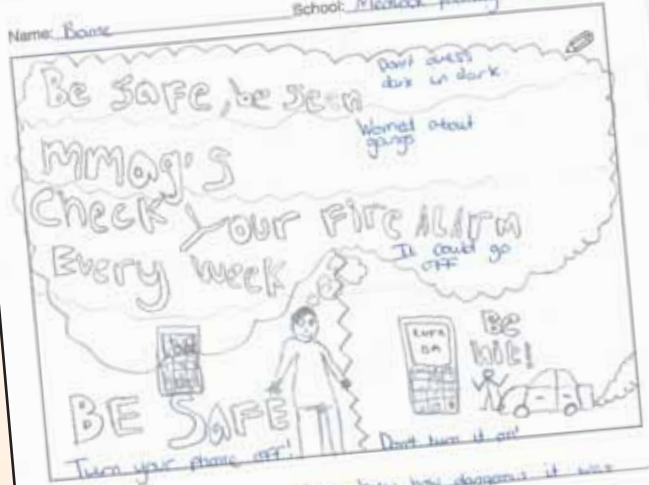 School: Medlock Primary
Name:
Be safe, be seen
Don't dress
dark in dark.
Worried about
gangs
Check Your Fire Alarm
Every week
It could go
off
turn
on
Be
hit!
BE SAFE
Turn your phone off!
Don't turn it on!
how dangerous it was